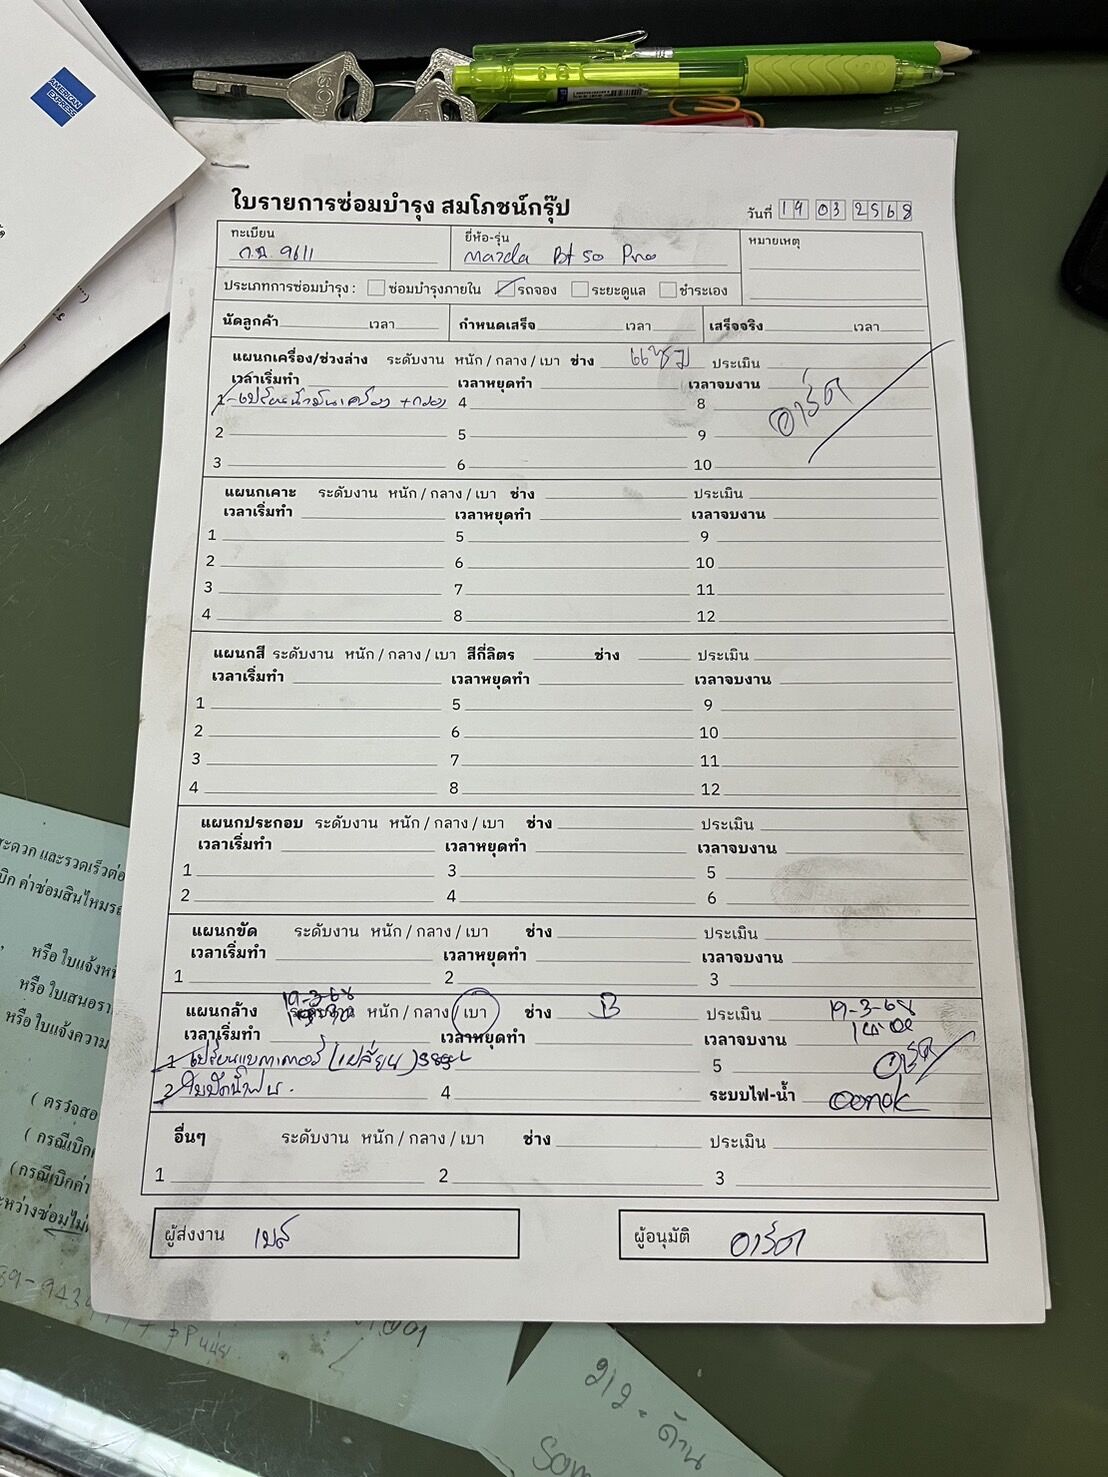 AMERICAN EXPRESS
ใบรายการซ่อมบำรุง สมโภชน์กรุ๊ป
วันที่ 19 03 2568
ทะเบียน ยี่ห้อ-รุ่น หมายเหตุ
9611 Mazda Bt 50 Pro
ประเภทการซ่อมบำรุง : ซ่อมบำรุงภายใน รถจอง ระยะดูแล ชำระเอง
นัดลูกค้า เวลา กำหนดเสร็จ เวลา เสร็จจริง เวลา
แผนกเครื่อง/ช่วงล่าง ระดับงาน หนัก / กลาง / เบา ช่าง ประเมิน
เวลาเริ่มทำ เวลาหยุดทำ เวลาจบงาน
1 เปลี่ยนน้ำมันเครื่อง + กรอง 4 8 อาร์ต
2 5 9
3 6 10
แผนกเคาะ ระดับงาน หนัก / กลาง / เบา ช่าง ประเมิน
เวลาเริ่มทำ เวลาหยุดทำ เวลาจบงาน
1 5 9
2 6 10
3 7 11
4 8 12
แผนกสี ระดับงาน หนัก / กลาง / เบา สีกี่ลิตร ช่าง ประเมิน
เวลาเริ่มทำ เวลาหยุดทำ เวลาจบงาน
1 5 9
2 6 10
3 7 11
4 8 12
แผนกประกอบ ระดับงาน หนัก / กลาง / เบา ช่าง ประเมิน
เวลาเริ่มทำ เวลาหยุดทำ เวลาจบงาน
1 3 5
2 4 6
แผนกขัด ระดับงาน หนัก / กลาง / เบา ช่าง ประเมิน
เวลาเริ่มทำ เวลาหยุดทำ เวลาจบงาน
1 2 3
แผนกล้าง 19-3-68 ระดับงาน หนัก / กลาง / เบา ช่าง B ประเมิน 19-3-68
เวลาเริ่มทำ เวลาหยุดทำ เวลาจบงาน
1 เปลี่ยนแบตเตอรี่ (เปลี่ยน) 5 อาร์ต
2 ใบปัดน้ำฝน 4 ระบบไฟ-น้ำ
อื่นๆ ระดับงาน หนัก / กลาง / เบา ช่าง ประเมิน
1 2 3
ผู้ส่งงาน เบส ผู้อนุมัติ อาร์ต
สะดวก และรวดเร็วต่อ
ค่าซ่อมสินไหมรถ
หรือ ใบแจ้งหนี้
หรือ ใบเสนอรา
หรือ ใบแจ้งความ
( ตรวจสอ
( กรณีเบิก
(กรณีเบิกค่า
ะหว่างซ่อมไม่
212 - ด้าน
Som